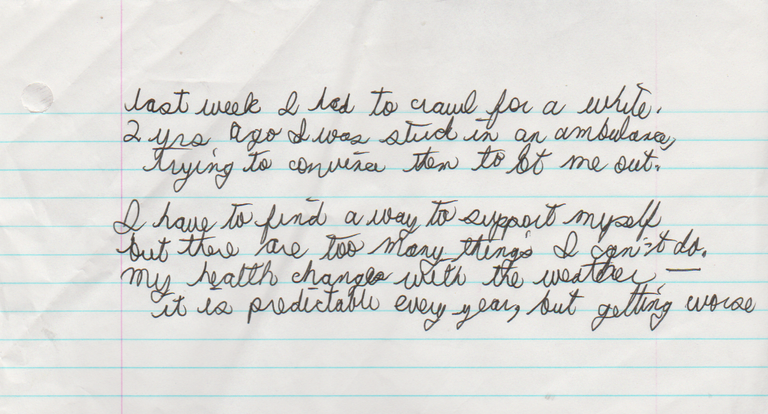 last week I had to crawl for a while.
2 yrs ago I was stuck in an ambulance,
trying to convince them to let me out.
I have to find a way to support myself
but there are too many things I can't do.
My health changes with the weather —
it is predictable every year, but getting worse